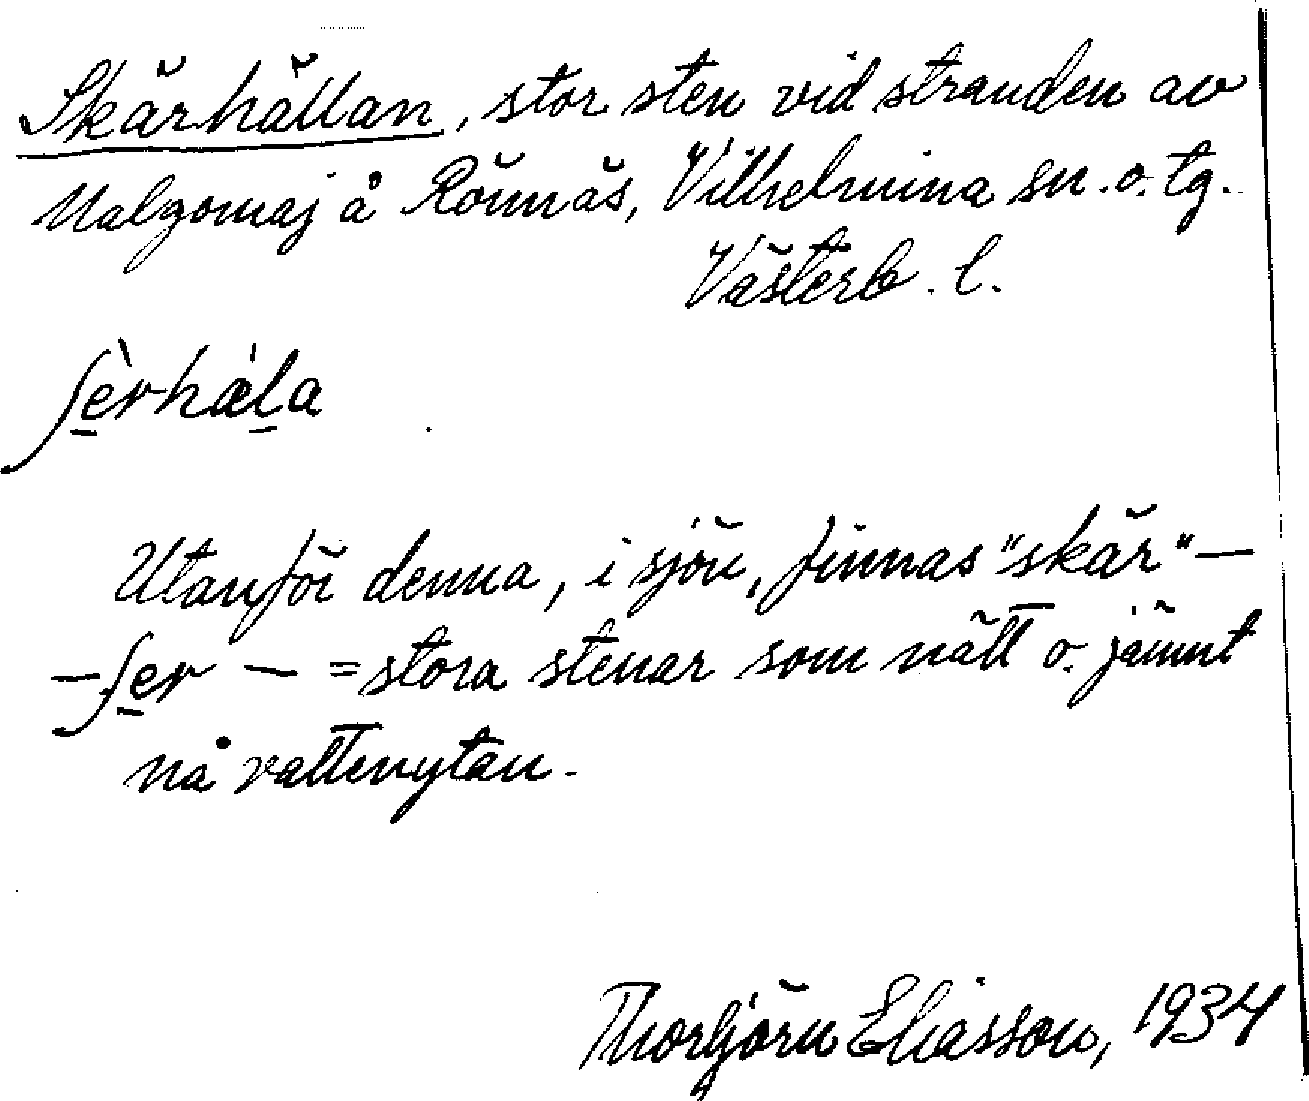 Skärhällan, stor sten vid stranden av
Malgomaj å Rönnäs, Vilhelmina sn. o. tg.
Västerb. l.
ʃè̱rhæ̀l̠a
Utanför denna, i sjön, finnas "skär" —
— ʃe̱r — = stora stenar som nätt o. jämnt
nå vattenytan.
Thorbjörn Eliasson, 1934